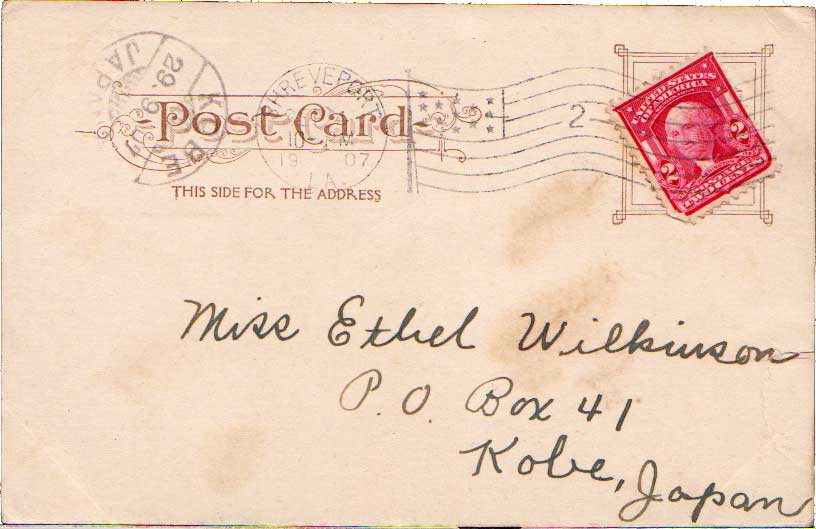 KOBE
29.9.07
JAPAN
SHREVEPORT
10 PM
19 07
LA.
Post Card
THIS SIDE FOR THE ADDRESS
2
UNITED STATES
OF AMERICA
2 2
TWO CENTS
Miss Ethel Wilkinson
P.O. Box 41
Kobe, Japan